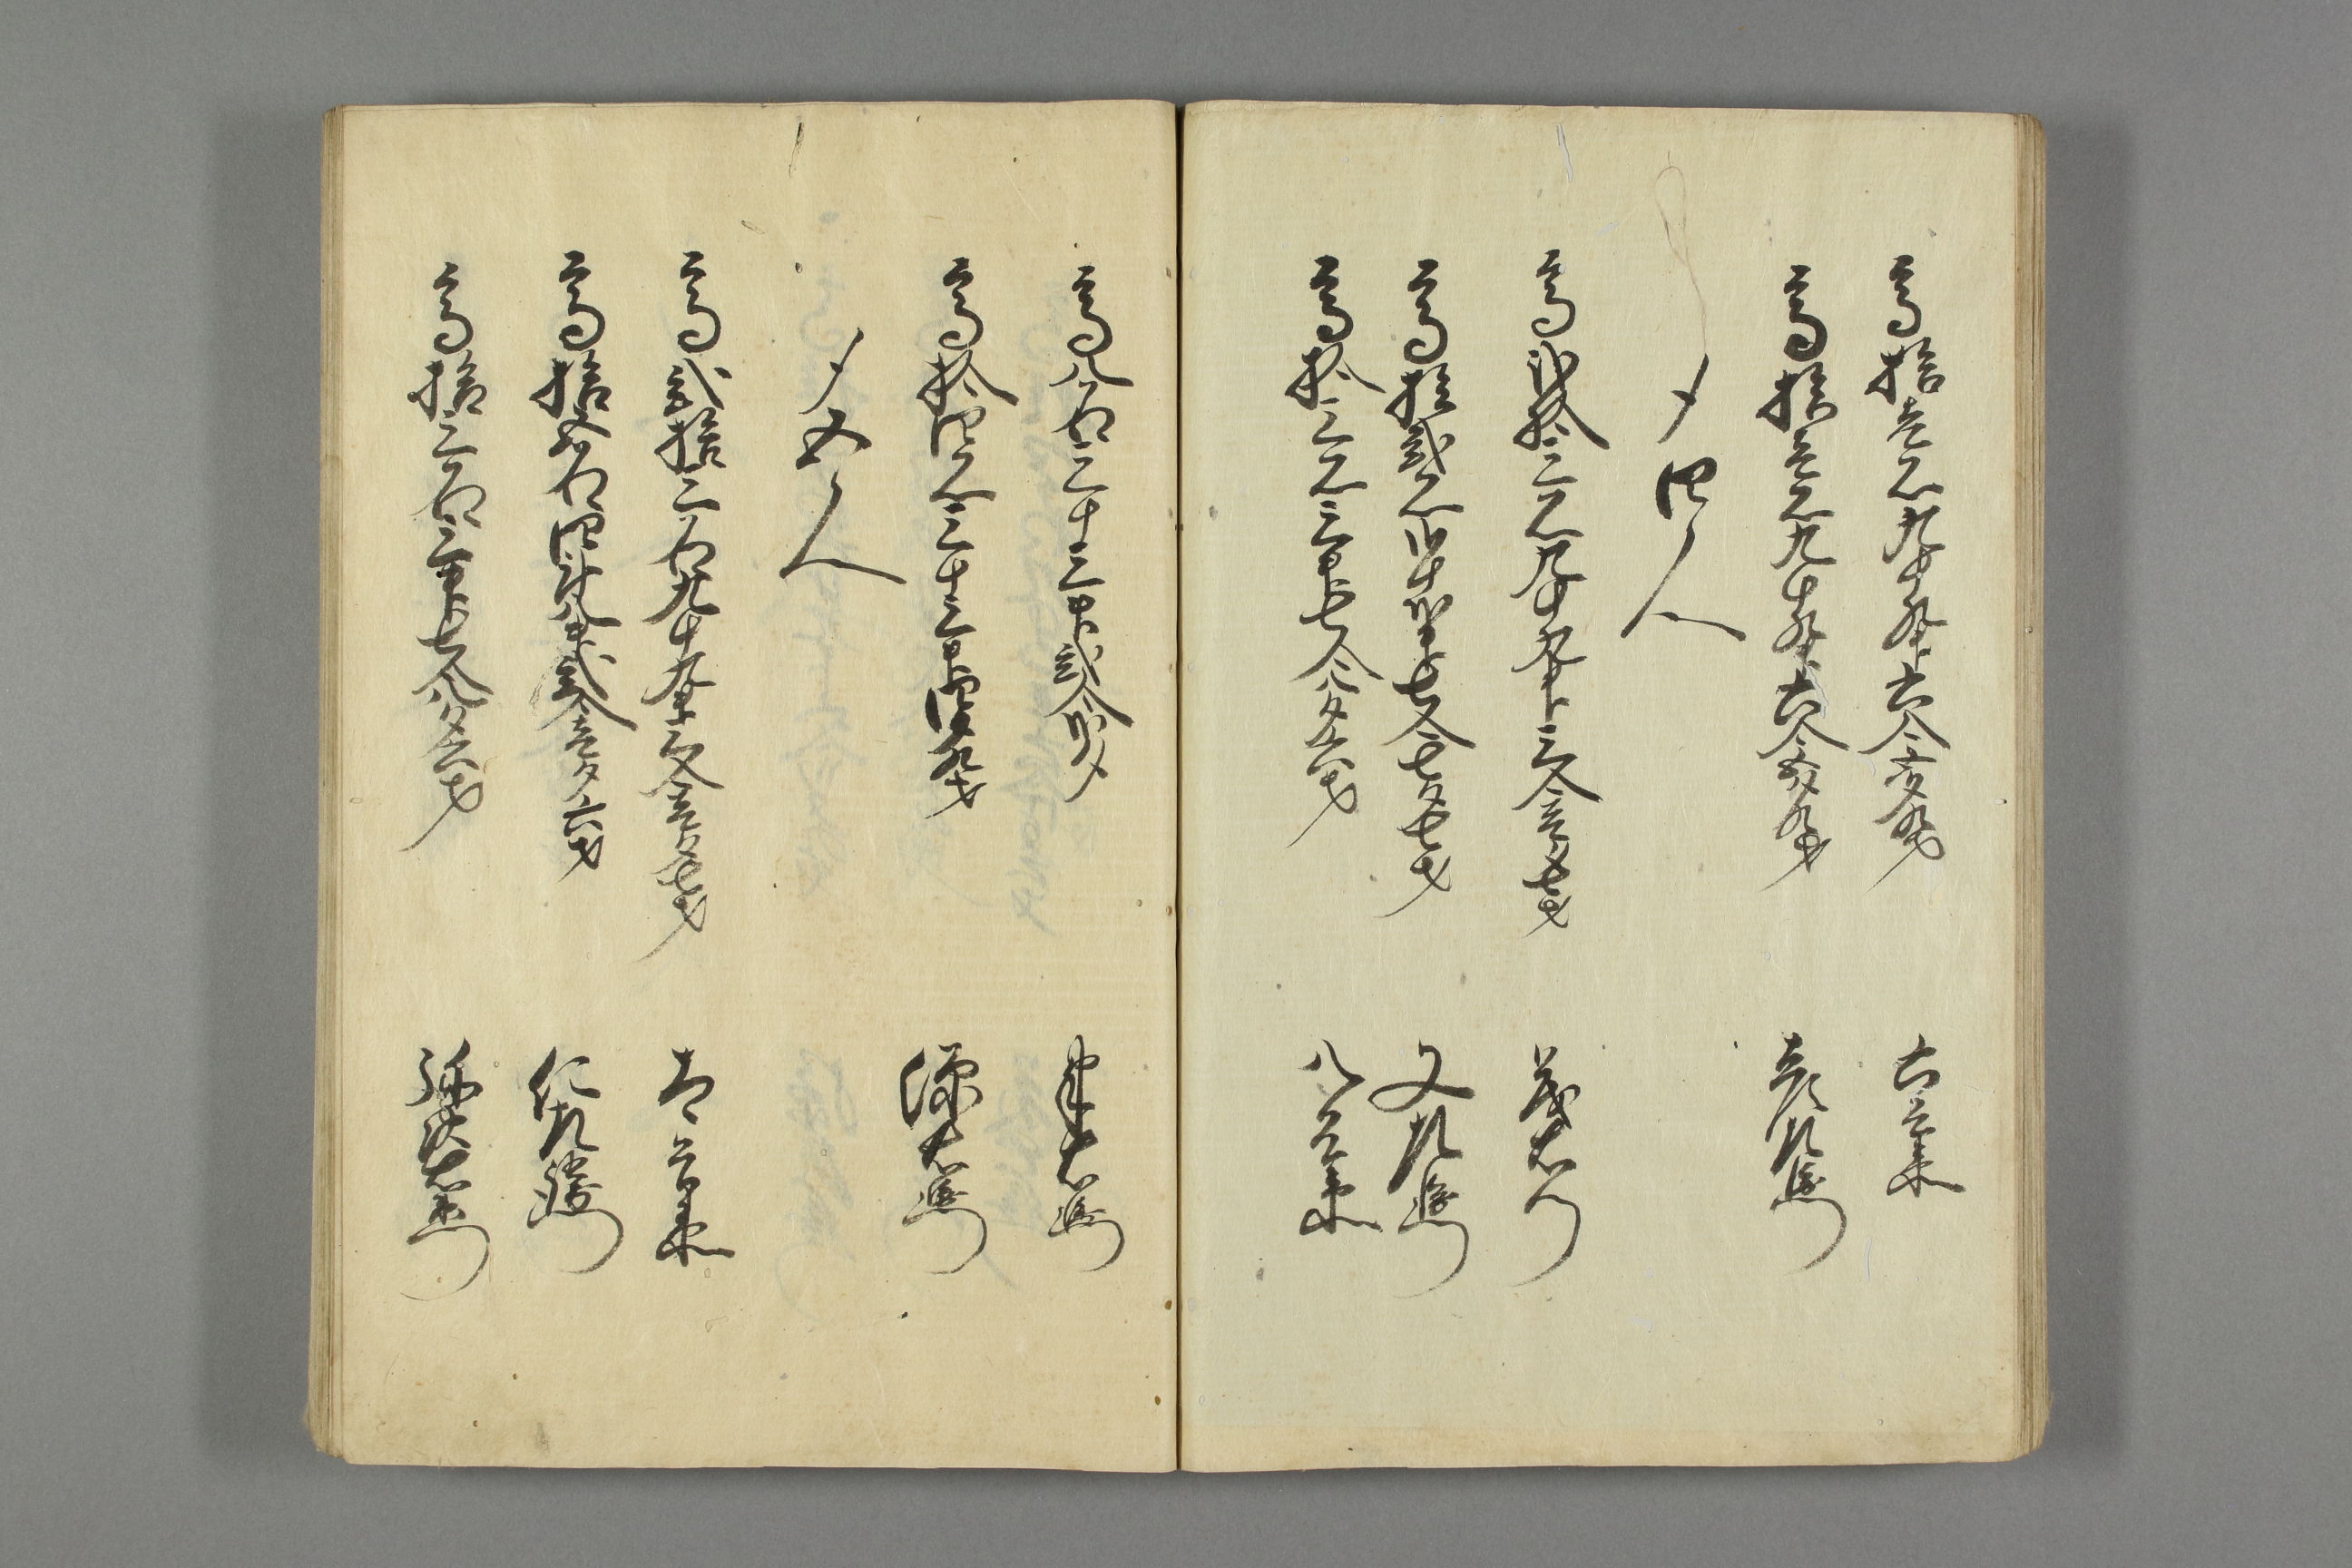 高拾壱石九斗九升六合六夕九才 六兵衛
高拾壱石九斗九升六合六夕九才 彦左衛門
〆四人
高弐拾三石九斗九升三合壱夕七才 茂右衛門
高拾弐石弐斗弐升七合七夕七才 又左衛門
高拾三石三升七合八夕六才 八兵衛
高八石三斗三升弐合弐夕 半右衛門
高拾四石三斗三升四夕九才 源右衛門
〆五人
高弐拾三石九斗九升三合壱夕七才 吉兵衛
高拾五石四斗八升弐合壱夕六才 仁左衛門
高拾三石三升七合八夕六才 弥次右衛門